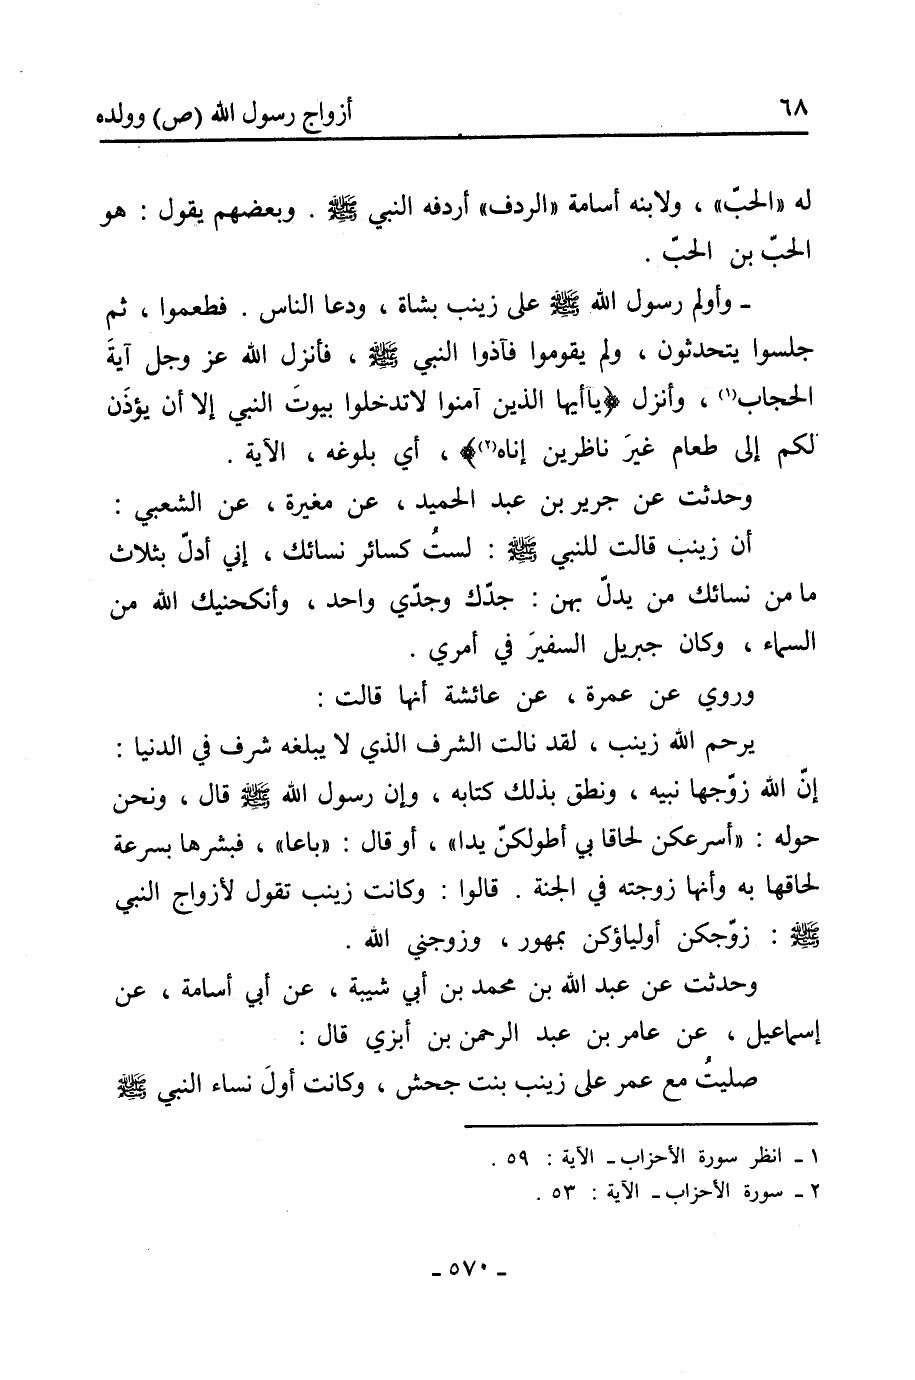 ٦٨ أزواج رسول الله (ص) وولده
له «الحبّ» ، ولابنه أسامة «الردف» أردفه النبي ﷺ . وبعضهم يقول : هو
الحبّ بن الحبّ .
ـ وأولم رسول الله ﷺ على زينب بشاة ، ودعا الناس . فطعموا ، ثم
جلسوا يتحدثون ، ولم يقوموا فآذوا النبي ﷺ ، فأنزل الله عز وجل آيةَ
الحجاب(١) ، وأنزل ﴿ياأيها الذين آمنوا لاتدخلوا بيوتَ النبي إلا أن يؤذَن
لكم إلى طعام غيرَ ناظرين إناه(٢)﴾ ، أي بلوغه ، الآية .
وحدثت عن جرير بن عبد الحميد ، عن مغيرة ، عن الشعبي :
أن زينب قالت للنبي ﷺ : لستُ كسائر نسائك ، إني أدلّ بثلاث
ما من نسائك من يدلّ بهن : جدّك وجدّي واحد ، وأنكحنيك الله من
السماء ، وكان جبريل السفيرَ في أمري .
وروي عن عمرة ، عن عائشة أنها قالت :
يرحم الله زينب ، لقد نالت الشرف الذي لا يبلغه شرف في الدنيا :
إنّ الله زوّجها نبيه ، ونطق بذلك كتابه ، وإن رسول الله ﷺ قال ، ونحن
حوله : «أسرعكن لحاقا بي أطولكنّ يدا» ، أو قال : «باعا» ، فبشرها بسرعة
لحاقها به وأنها زوجته في الجنة . قالوا : وكانت زينب تقول لأزواج النبي
ﷺ : زوّجكن أولياؤكن بمهور ، وزوجني الله .
وحدثت عن عبد الله بن محمد بن أبي شيبة ، عن أبي أسامة ، عن
إسماعيل ، عن عامر بن عبد الرحمن بن أبزي قال :
صليتُ مع عمر على زينب بنت جحش ، وكانت أولَ نساء النبي ﷺ
١ ـ انظر سورة الأحزاب ـ الآية : ٥٩ .
٢ ـ سورة الأحزاب ـ الآية : ٥٣ .
ـ ٥٧٠ ـ